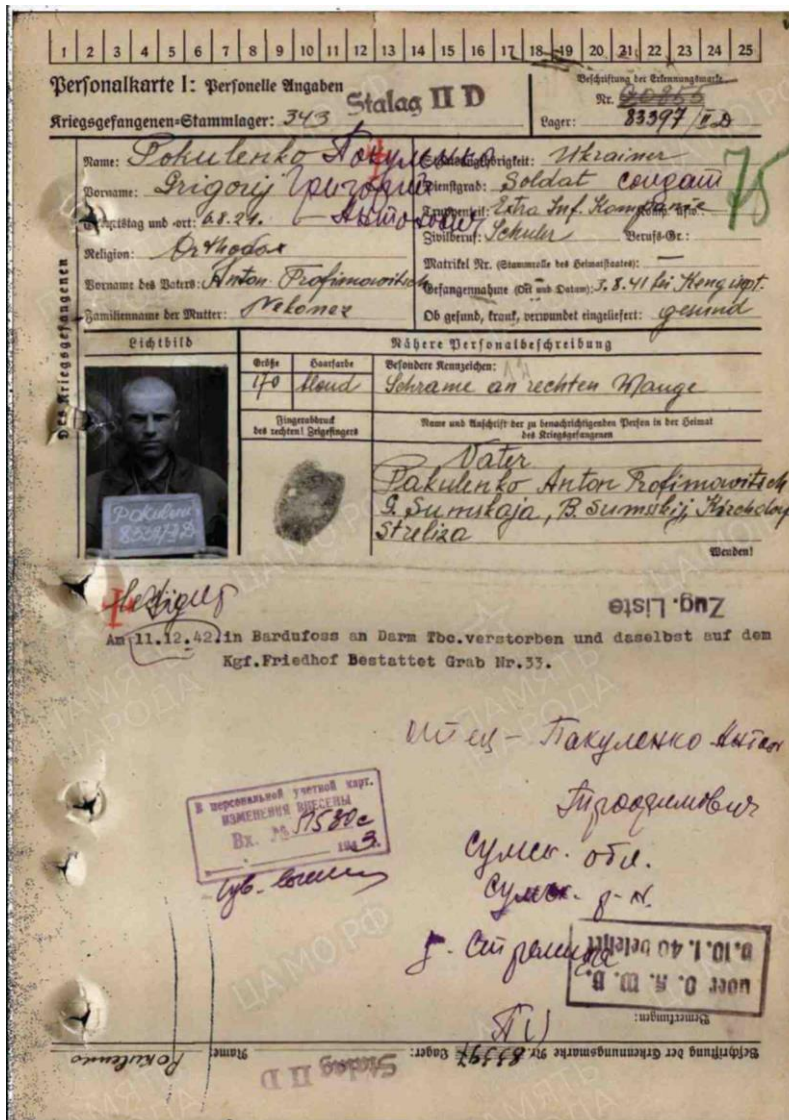 1 2 3 4 5 6 7 8 9 10 11 12 13 14 15 16 17 18 19 20 21 22 23 24 25
Personalkarte I: Personelle Angaben
Stalag II D
Beschriftung der Erkennungsmarke
Kriegsgefangenen-Stammlager: 343
Nr.
Lager: 83397/II D
Des Kriegsgefangenen
Name: Pokulenko Пакуленко
Vorname: Grigorij Григорий
Антонович
Geburtstag und -ort: 6.8.21.
Religion: Orthodox
Vorname des Vaters: Anton Trofimowitsch
Familienname der Mutter:
Staatsangehörigkeit: Ukrainer
Dienstgrad: Soldat солдат
75
Truppenteil: Extra Inf. Kompanie
Zivilberuf: Schuler Berufs-Gr.:
Matrikel Nr. (Stammrolle des Heimatstaates): —
Gefangennahme (Ort und Datum): 3.8.41 bei
Ob gesund, krank, verwundet eingeliefert: gesund
Lichtbild
Nähere Personalbeschreibung
Größe Haarfarbe Besondere Kennzeichen:
170 blond Schrame an rechten Wange
Fingerabdruck des rechten! Zeigefingers
Name und Anschrift der zu benachrichtigenden Person in der Heimat
des Kriegsgefangenen
Vater
Pakulenko Anton Trofimowitsch
G. Sumskaja, B. Sumskij, Kirchdorf
Streliza
Pokulen
83397 II D
Wenden!
Zug. Liste
Am 11.12.42.in Bardufoss an Darm Tbc.verstorben und daselbst auf dem
Kgf.Friedhof Bestattet Grab Nr.33.
Отец - Пакуленко Антон
Трофимович
Сумск. обл.
Сумск. р-н.
В персональной учетной карт.
ИЗМЕНЕНИЯ ВНЕСЕНЫ
Вх. №
194
über O. K. W. V.
v. 10. 1. 40 belehrt
Bemerkungen:
Beschriftung der Erkennungsmarke Nr. 83397 Lager: Stalag II D Name: Pokulenko
ЦАМО.РФ
ПАМЯТЬ
НАРОДА